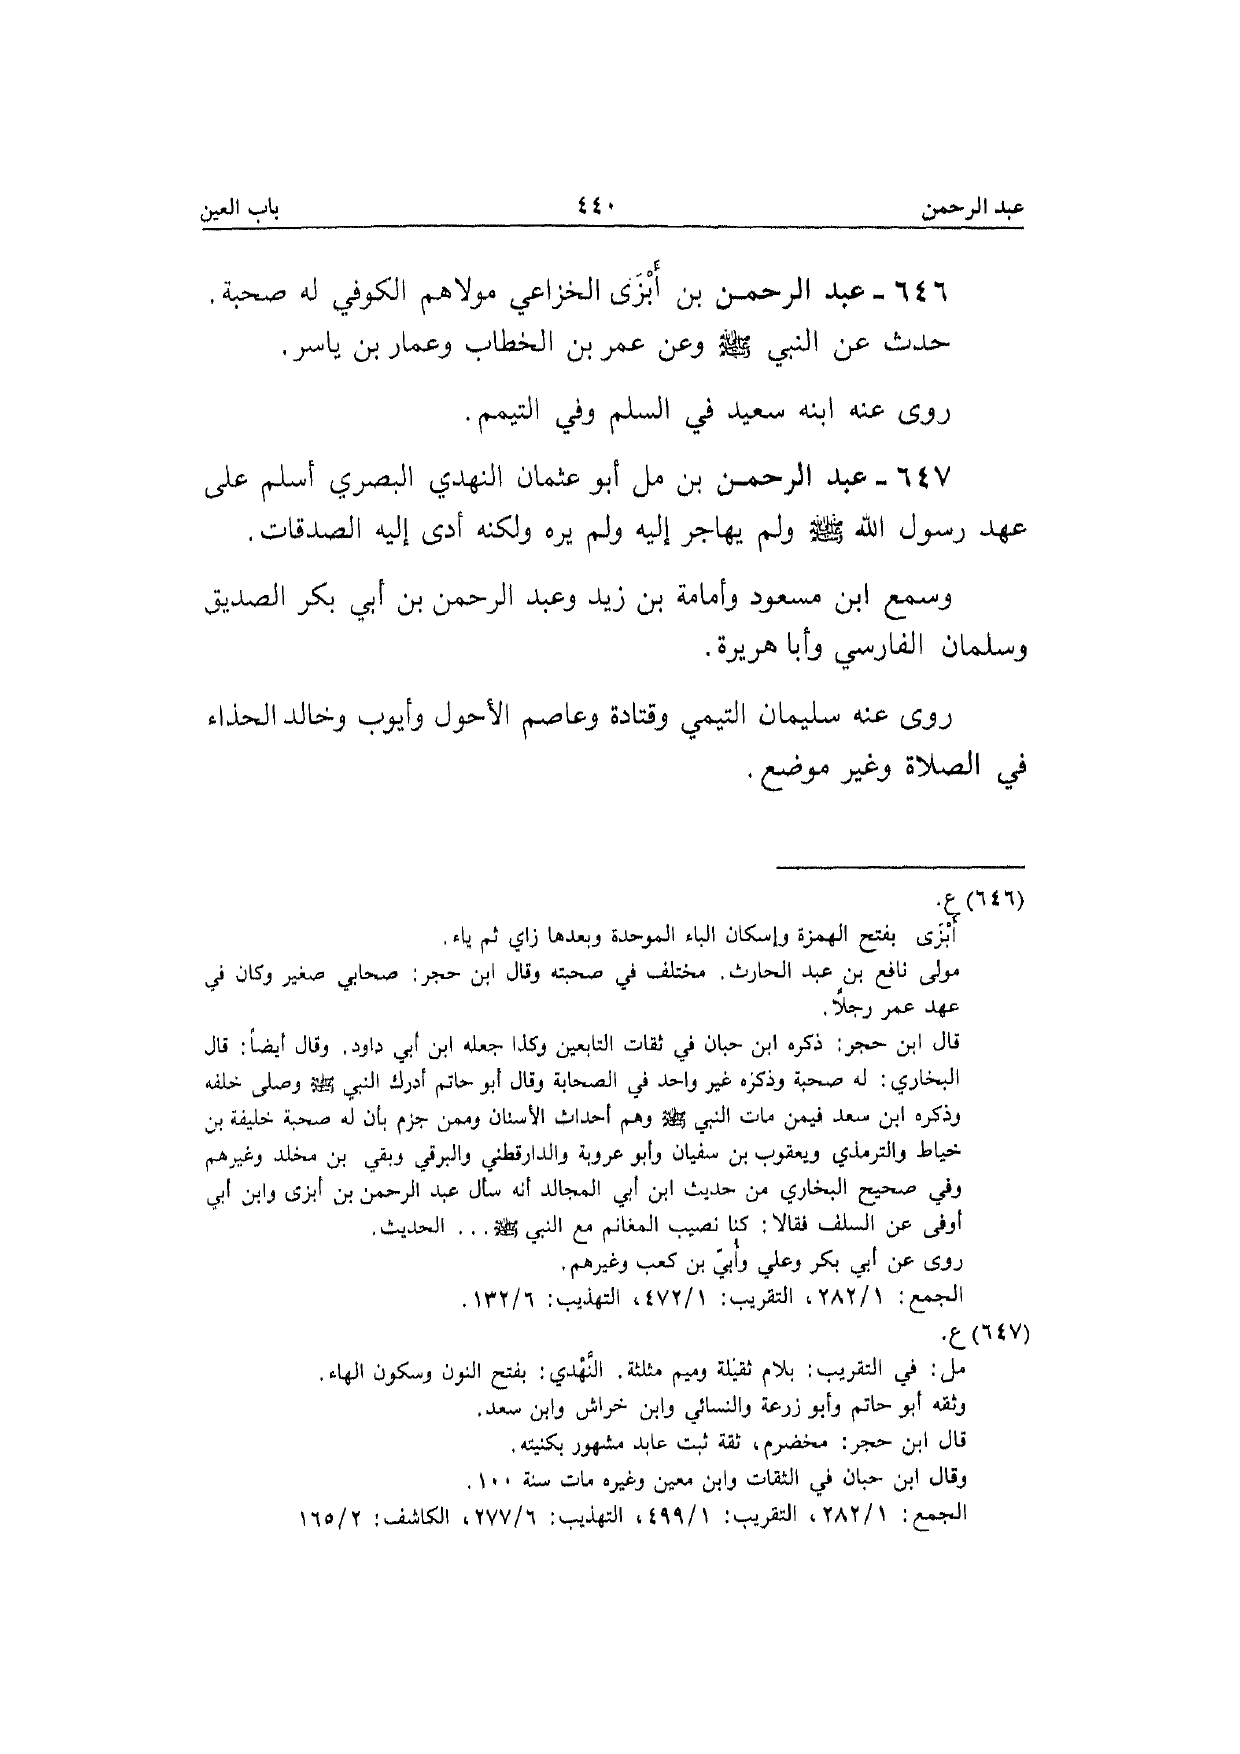 عبد الرحمن ٤٤٠ باب العين
٦٤٦ - عبد الرحمن بن أَبْزَى الخزاعي مولاهم الكوفي له صحبة.
حدث عن النبي ﷺ وعن عمر بن الخطاب وعمار بن ياسر.
روى عنه ابنه سعيد في السلم وفي التيمم.
٦٤٧ - عبد الرحمن بن مل أبو عثمان النهدي البصري أسلم على
عهد رسول الله ﷺ ولم يهاجر إليه ولم يره ولكنه أدى إليه الصدقات.
وسمع ابن مسعود وأمامة بن زيد وعبد الرحمن بن أبي بكر الصديق
وسلمان الفارسي وأبا هريرة.
روى عنه سليمان التيمي وقتادة وعاصم الأحول وأيوب وخالد الحذاء
في الصلاة وغير موضع.
(٦٤٦) ع.
أَبْزَى بفتح الهمزة وإسكان الباء الموحدة وبعدها زاي ثم ياء.
مولى نافع بن عبد الحارث. مختلف في صحبته وقال ابن حجر: صحابي صغير وكان في
عهد عمر رجلاً.
قال ابن حجر: ذكره ابن حبان في ثقات التابعين وكذا جعله ابن أبي داود. وقال أيضاً: قال
البخاري: له صحبة وذكره غير واحد في الصحابة وقال أبو حاتم أدرك النبي ﷺ وصلى خلفه
وذكره ابن سعد فيمن مات النبي ﷺ وهم أحداث الأسنان وممن جزم بأن له صحبة خليفة بن
خياط والترمذي ويعقوب بن سفيان وأبو عروبة والدارقطني والبرقي وبقي بن مخلد وغيرهم
وفي صحيح البخاري من حديث ابن أبي المجالد أنه سأل عبد الرحمن بن أبزى وابن أبي
أوفى عن السلف فقالا: كنا نصيب المغانم مع النبي ﷺ... الحديث.
روى عن أبي بكر وعلي وأُبيّ بن كعب وغيرهم.
الجمع: ٢٨٢/١، التقريب: ٤٧٢/١، التهذيب: ١٣٢/٦.
(٦٤٧) ع.
مل: في التقريب: بلام ثقيلة وميم مثلثة. النَّهْدي: بفتح النون وسكون الهاء.
وثقه أبو حاتم وأبو زرعة والنسائي وابن خراش وابن سعد.
قال ابن حجر: مخضرم، ثقة ثبت عابد مشهور بكنيته.
وقال ابن حبان في الثقات وابن معين وغيره مات سنة ١٠٠.
الجمع: ٢٨٢/١، التقريب: ٤٩٩/١، التهذيب: ٢٧٧/٦، الكاشف: ١٦٥/٢